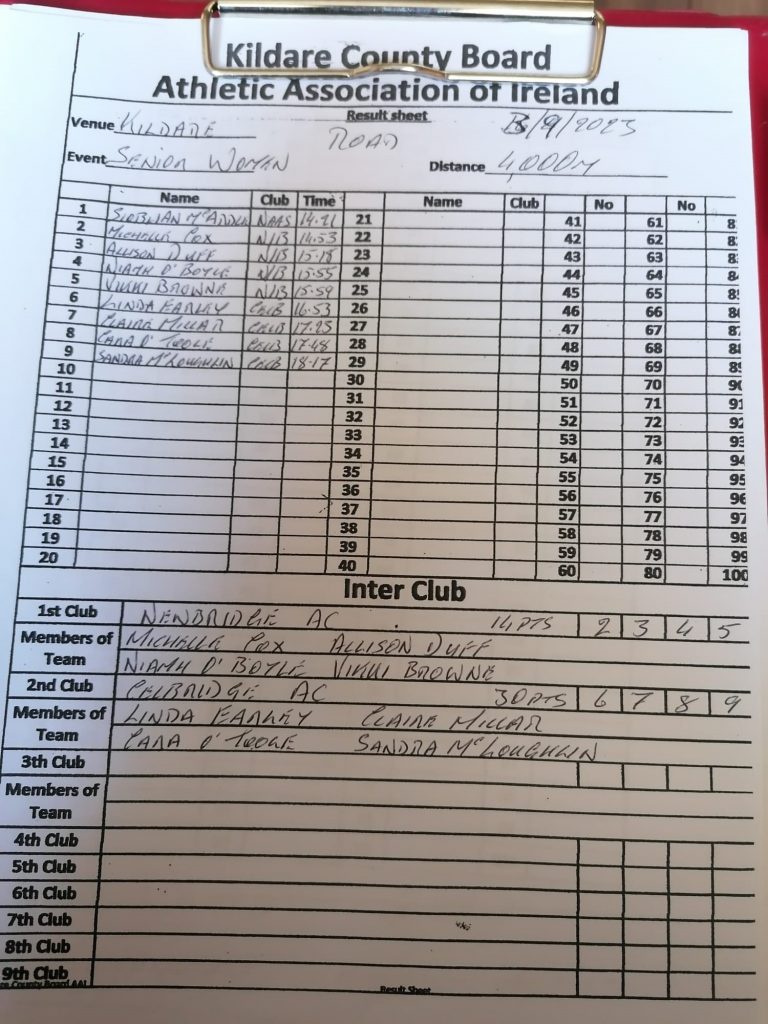 Kildare County Board
Athletic Association of Ireland
Result sheet
Venue KILDARE ROAD /9/2023
Event SENIOR WOMAN Distance 4,000M
Name Club Time Name Club No No
1 SIOBHAN NAAS 21 41 61 8
2 MICHELLE COX N/B 14.53 22 42 62 8
3 ALLISON DUFF N/B 15.18 23 43 63 8
4 NIAMH O'BOYLE N/B 15.55 24 44 64 8
5 VIKKI BROWNE N/B 15.59 25 45 65 8
6 LINDA EARLEY CELB 16.53 26 46 66 8
7 CLAIRE MILLAR CELB 17.25 27 47 67 8
8 CARA O'TOOLE CELB 17.48 28 48 68 8
9 SANDRA McLOUGHLIN CELB 18.17 29 49 69 8
10 30 50 70 90
11 31 51 71 91
12 32 52 72 92
13 33 53 73 93
14 34 54 74 94
15 35 55 75 95
16 36 56 76 96
17 37 57 77 97
18 38 58 78 98
19 39 59 79 99
20 40 60 80 100
Inter Club
1st Club NEWBRIDGE AC 14 PTS 2 3 4 5
Members of Team MICHELLE COX ALLISON DUFF
NIAMH O'BOYLE VIKKI BROWNE
2nd Club CELBRIDGE AC 30 PTS 6 7 8 9
Members of Team LINDA EARLEY CLAIRE MILLAR
CARA O'TOOLE SANDRA McLOUGHLIN
3th Club
Members of Team
4th Club
5th Club
6th Club
7th Club
8th Club
9th Club
re County Board AAI Result Sheet